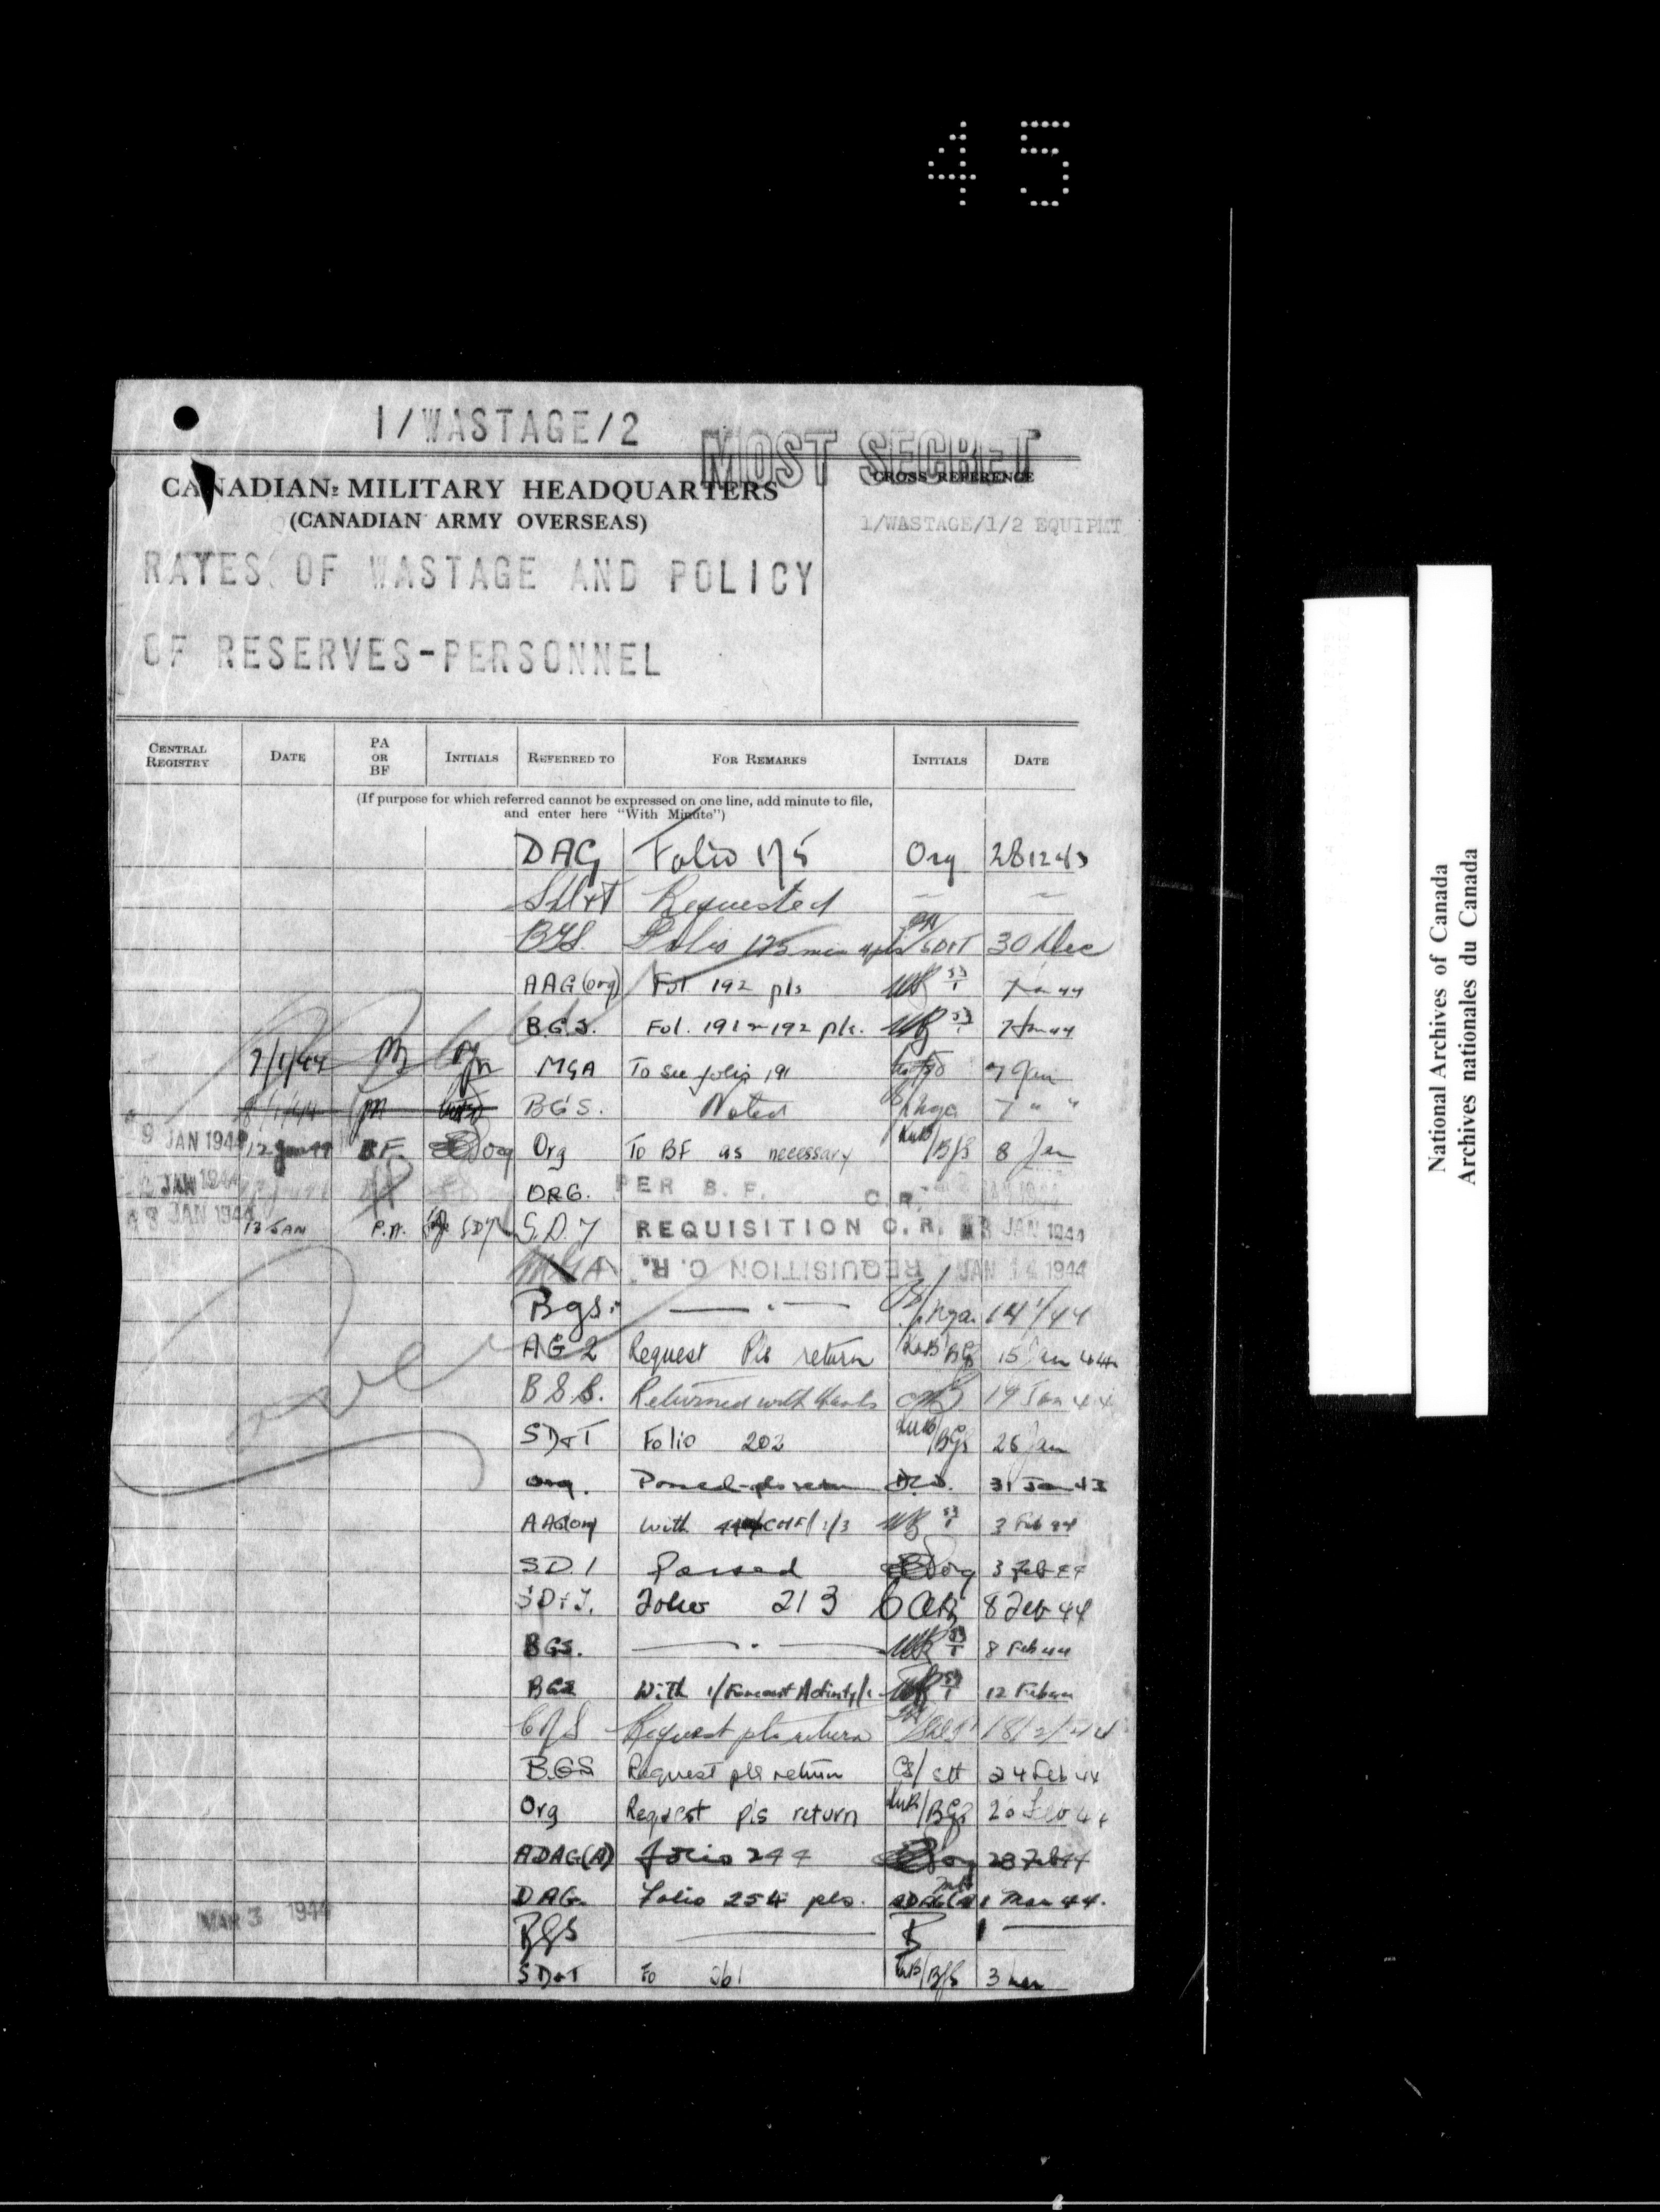 45
1/WASTAGE/2
MOST SECRET
CANADIAN MILITARY HEADQUARTERS
(CANADIAN ARMY OVERSEAS)
CROSS REFERENCE
1/WASTAGE/1/2 EQUIPMT
RATES OF WASTAGE AND POLICY
OF RESERVES-PERSONNEL
CENTRAL REGISTRY DATE PA OR BF INITIALS REFERRED TO FOR REMARKS INITIALS DATE
(If purpose for which referred cannot be expressed on one line, add minute to file,
and enter here "With Minute")
DAG Folio 175 Org 28 12 43
SD&T Requested
BGS. Folio 175 SD&T 30 Dec
AAG(org) Fol 192 pls
B.G.S. Fol. 191 192 pls. 7 Jan 44
7/1/44 MGA To see folio 191 7 Jan
BGS. Noted 7 " "
9 JAN 1944 12 Jan 44 BF. Org Org To BF as necessary /BGS 8 Jen
JAN 1944 ORG. PER B. F. C.R.
JAN 1944 13 JAN P.A. SDT S.D.T REQUISITION C.R. JAN 1944
MGA REQUISITION C.R. JAN 14 1944
Bgs. — . — /mga. 14/1/44
AG 2 Request Pls return BGS 15 Jan 44
B.G.S. Returned with thanks 19 Jan 44
SD&T Folio 202 /BGS 26 Jan
Org. Passed-pls return 31 Jan 43
AAG(org) With 3 Feb 44
S.D.1 Passed Org 3 Feb 44
SD&T. Folio 213 8 Feb 44
BGS. — . — 8 Feb 44
BGS With 1/Forecast Activity/ 12 Feb 44
Request pls return 18/2/44
BGS Request pls return 24 Feb 44
Org Request pls return /BGS 26 Feb 44
ADAG(A) folio 244 Org 28 Feb 44
DAG. Folio 254 pls. ADAG(A) 1 Mar 44.
MAR 3 1944
BGS
SD&T Fo 261 /BGS 3 Mar
National Archives of Canada
Archives nationales du Canada